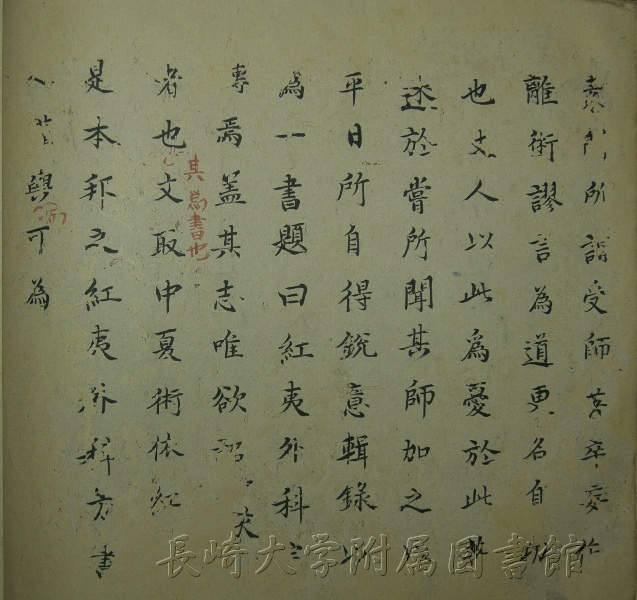 素問所謂受師苦卒妄作
離術謬言為道更名自功
也丈人以此為憂於此撰
述於嘗所聞其師加之
平日所自得銳意輯錄以
為一書題曰紅夷外科
專焉蓋其志唯欲
者也其為書也文取中夏術依紅夷
是本邦之紅夷外科書
可為
長崎大学附属図書館